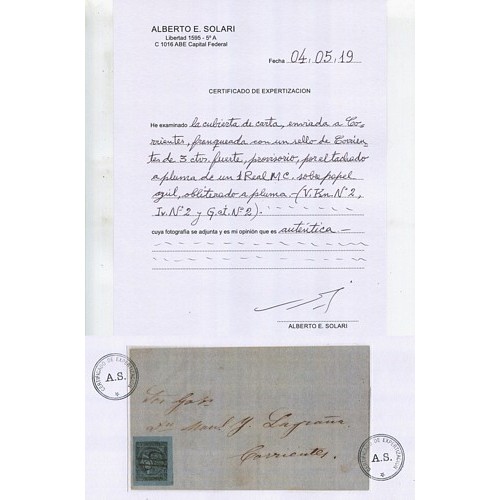 ALBERTO E. SOLARI
Libertad 1595 - 5º A
C 1016 ABE Capital Federal
Fecha 04.05.19
CERTIFICADO DE EXPERTIZACION
He examinado la cubierta de carta, enviada a Co-
rrientes, franqueada con un sello de Corrien-
tes de 3 ctvs. fuerte, provisorio, por el tachado
a pluma de un 1 Real M.C. sobre papel
azul, obliterado a pluma.- (V. Kn. Nº 2,
Iv. Nº 2 y G. et. Nº 2).
cuya fotografía se adjunta y es mi opinión que es auténtica.-
ALBERTO E. SOLARI
CERTIFICADO DE EXPERTIZACION
A.S.
Dn Manl J. Lagraña
Corrientes.
CERTIFICADO DE EXPERTIZACION
A.S.